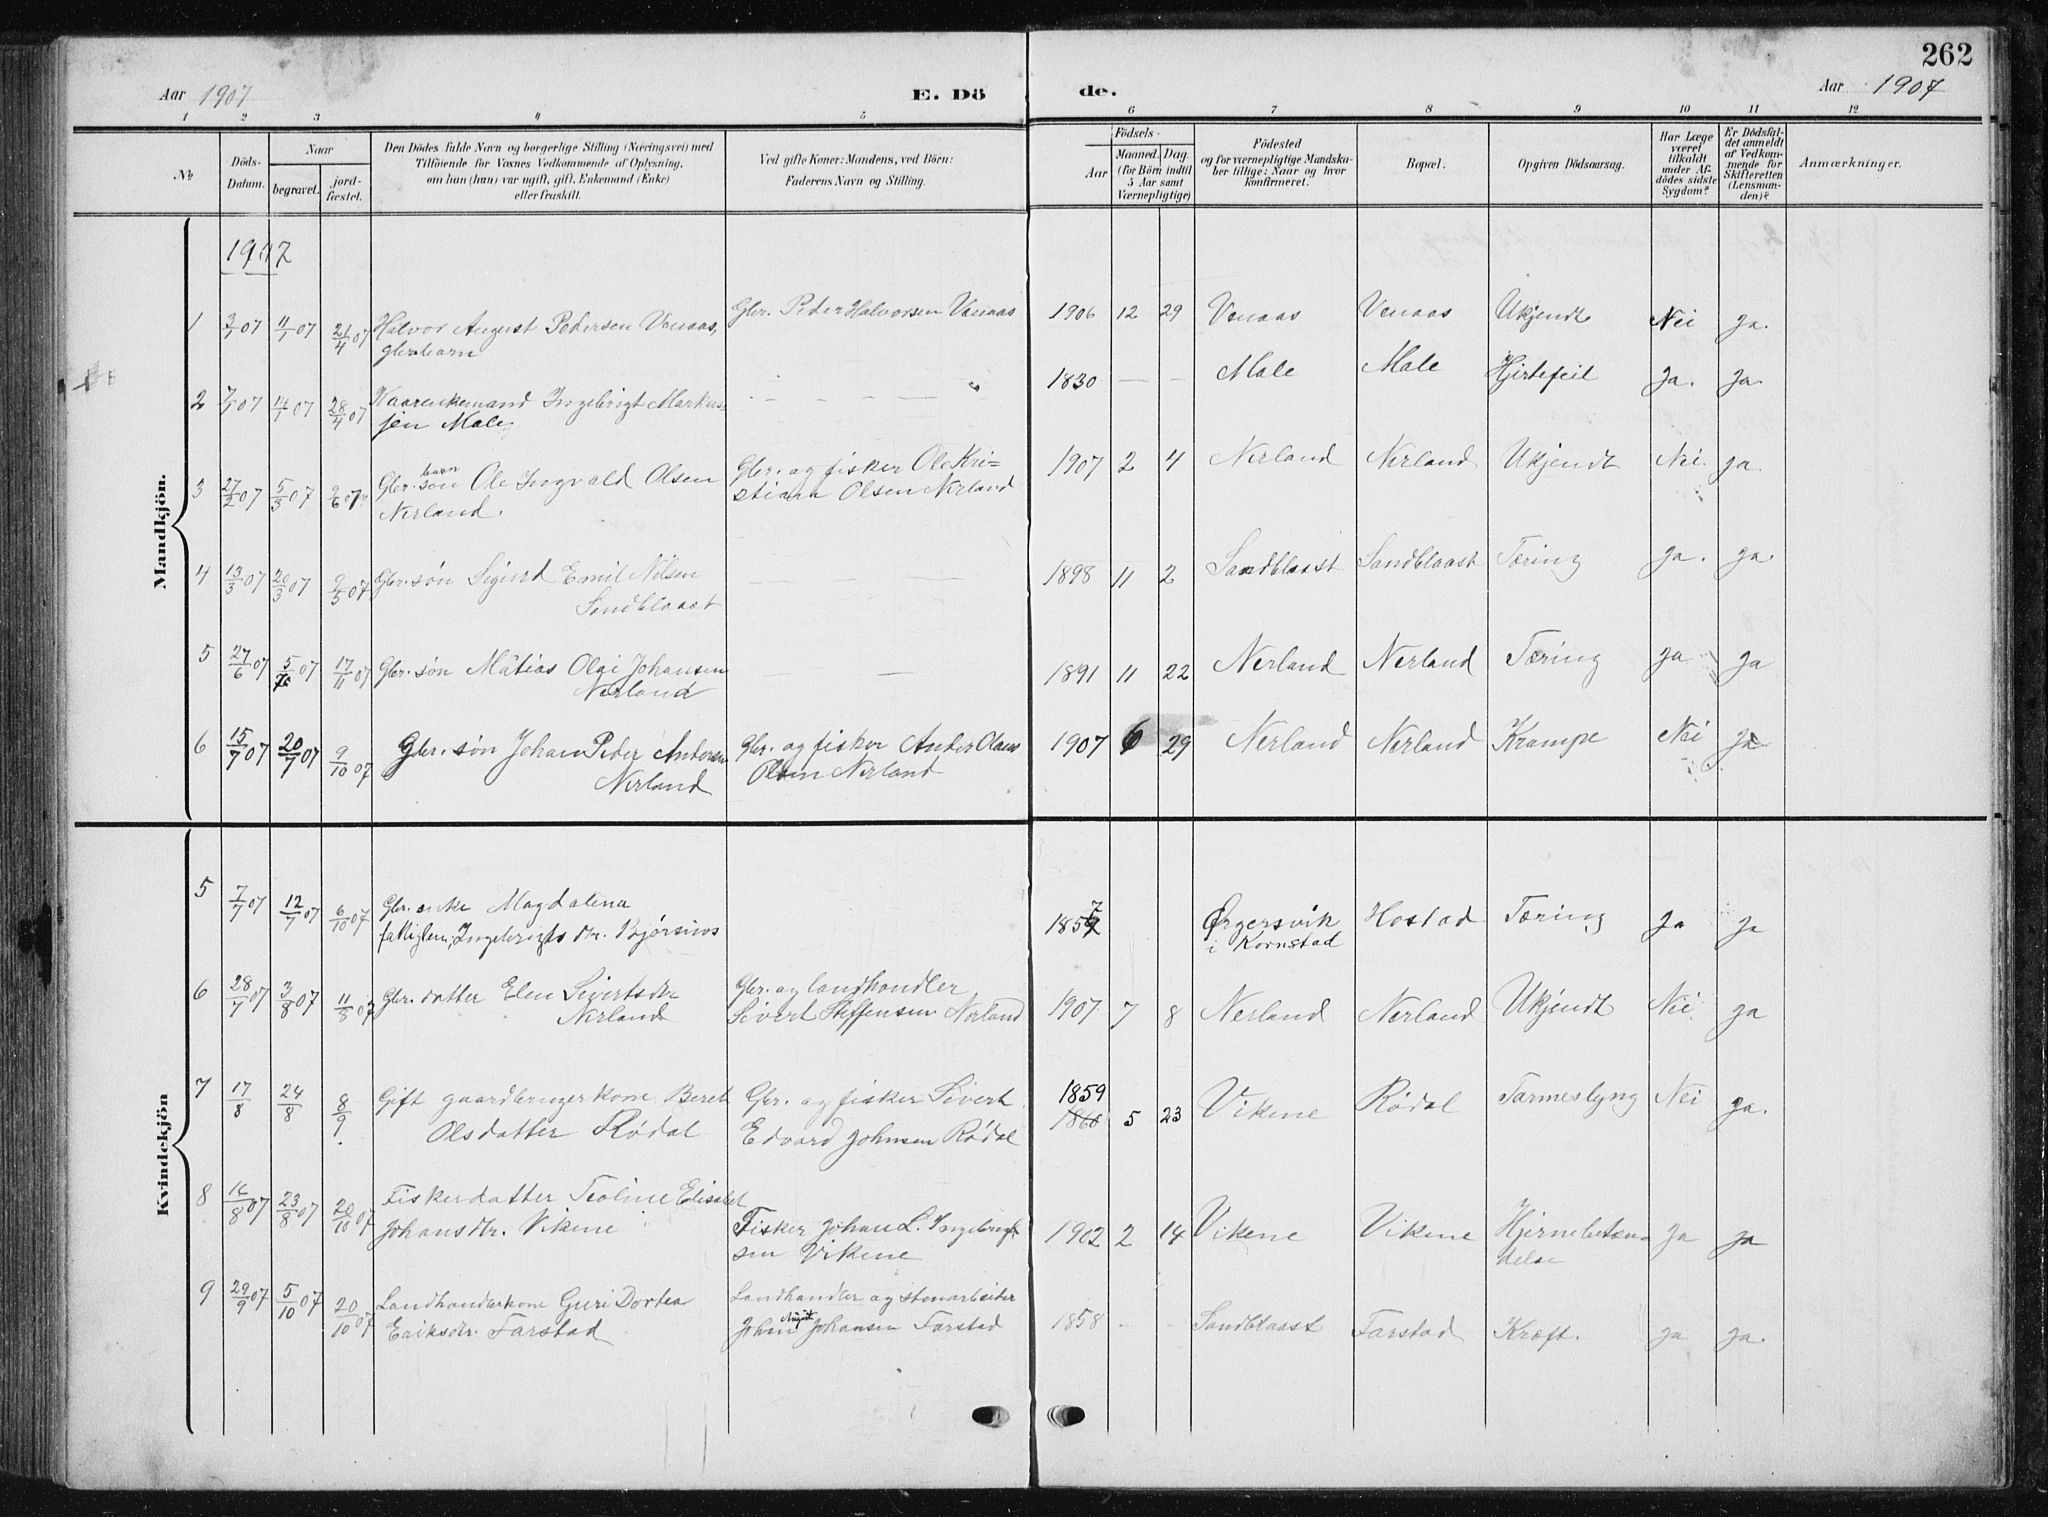 262
Aar 1907
E. Dö
de.
Aar 1907
1 2 3 4 5 6 7 8 9 10 11 12
No
Döds-
Datum.
Naar
begravet.
jord-
fæstet.
Den Dödes fulde Navn og borgerlige Stilling (Næringsvei) med
Tilföiende for Voxnes Vedkommende af Oplysning,
om han (hun) var ugift, gift, Enkemand (Enke)
eller fraskilt.
Ved gifte Koner: Mandens, ved Börn:
Faderens Navn og Stilling.
Födsels-
Aar
Maaned. Dag.
(for Börn indtil
5 Aar samt
Værnepligtige)
Födested
og for værnepligtige Mandska-
ber tillige: Naar og hvor
konfirmeret.
Bopæl.
Opgiven Dödsaarsag.
Har Læge
været
tilkaldt
under Af-
dödes sidste
Sygdom?
Er Dödsfal-
det anmeldt
af Vedkom-
mende for
Skifteretten
(Lensman-
den)?
Anmærkninger.
Mandkjön.
1907
1 3/1 07 11/1 07 21/4 07 Halvor August Pedersen Venaas, Gbr. Peder Halvorsen Venaas 1906 12 29 Venaas Venaas Ukjendt Nei ja.
gbr. barn
2 7/1 07 14/1 07 28/4 07 Kaarenkemand Ingebrigt Markus- — — — 1830 — — Male Male Hjertefeil ja. ja.
sen Male
3 27/2 07 5/3 07 9/6 07 Gbr. søn barn Ole Ingvald Olsen Gbr. og fisker Ole Kri- 1907 2 4 Nerland Nerland Ukjendt Nei. ja.
Nerland. stian Olsen Nerland
4 13/3 07 20/3 07 9/5 07 Gbr. søn Sigurd Emil Nilsen — — — 1898 11 2 Sandblaast Sandblaast Tæring ja. ja.
Sandblaast
5 27/6 07 5/7 07 17/11 07 Gbr. søn Mätias Olai Johansen — — 1891 11 22 Nerland Nerland Tæring ja ja
Nerland
6 15/7 07 20/7 07 9/10 07 Gbr. søn Johan Peder Andersen Gbr. og fisker Ander Olaus 1907 6 29 Nerland Nerland Krampe Nei ja
Nerland Olsen Nerland
Kvindekjön
5 7/7 07 12/7 07 6/10 07 Gbr. enke Magdalena 1857 Ørgersvik Hostad Tæring ja ja
fattiglem, Ingebrigts dtr. i Kornstad
6 28/7 07 3/8 07 11/8 07 Gbr. datter Elen Sivertsdtr Gbr. og landhandler 1907 7 8 Nerland Nerland Ukjendt Nei. ja
Nerland Sivert Steffensen Nerland
7 17/8 24/8 8/9 Gift gaardbrugerkone Beret Gbr. og fisker Sivert 1859 1860 5 23 Vikene Rødal Tarmeslyng Nei ja.
Olsdatter Rødal Edvard Johnsen Rødal
8 16/8 07 23/8 07 20/10 07 Fiskerdatter Teoline Elisabet
Johansdtr. Vikene Fisker Johan L. Ingebrigt- 1902 2 14 Vikene Vikene Hjernebetæn- ja ja
sen Vikene delse
9 29/9 07 5/10 07 20/10 07 Landhandlerkone Guri Dortea Landhandler og stenarbeider 1858 — — Sandblaast Farstad Kræft. ja ja.
Eriksdtr. Farstad Johan August Johansen Farstad